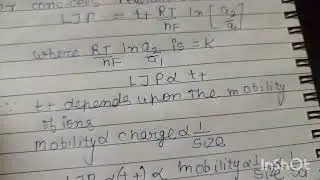 for conc cells
LJP = t+ RT/nF ln [a2/a1]
where RT/nF ln a2/a1 is = K
LJP ∝ t+
∴ t+ depends upon the mobility
of ions
mobility ∝ charge ∝ 1/size
LJP ∝ (t+) ∝ mobility ∝ 1/size
InShOt